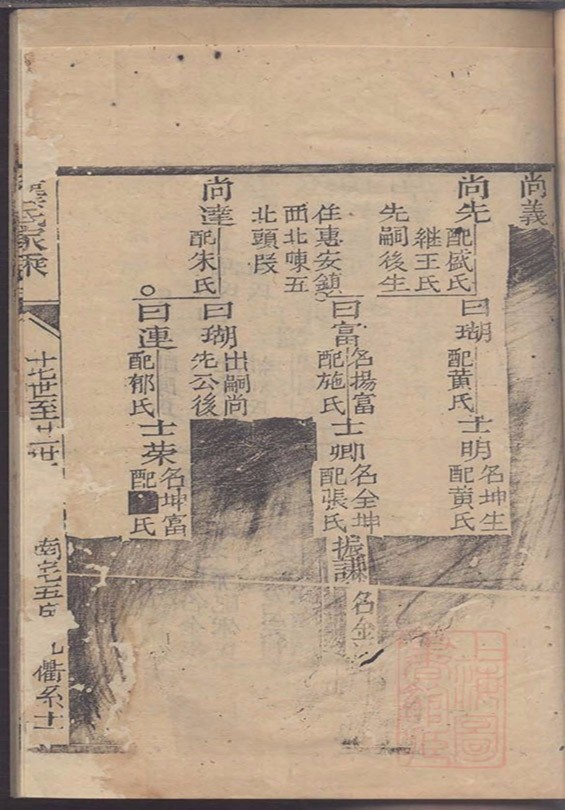 尚義
尚先
配盛氏
継王氏
先嗣後生
曰瑚
配黄氏
士明
名坤生
配黄氏
曰富
名揚富
配施氏
士卿
名全坤
配張氏
振謙
名金
住惠安鎮
西北㖦五
北頭段
尚達
配朱氏
曰瑚
出嗣尚
先公後
曰連
配郁氏
士荣
名坤富
配
氏
氏家乘
十七世至廿一世
南宅五
衢系十一